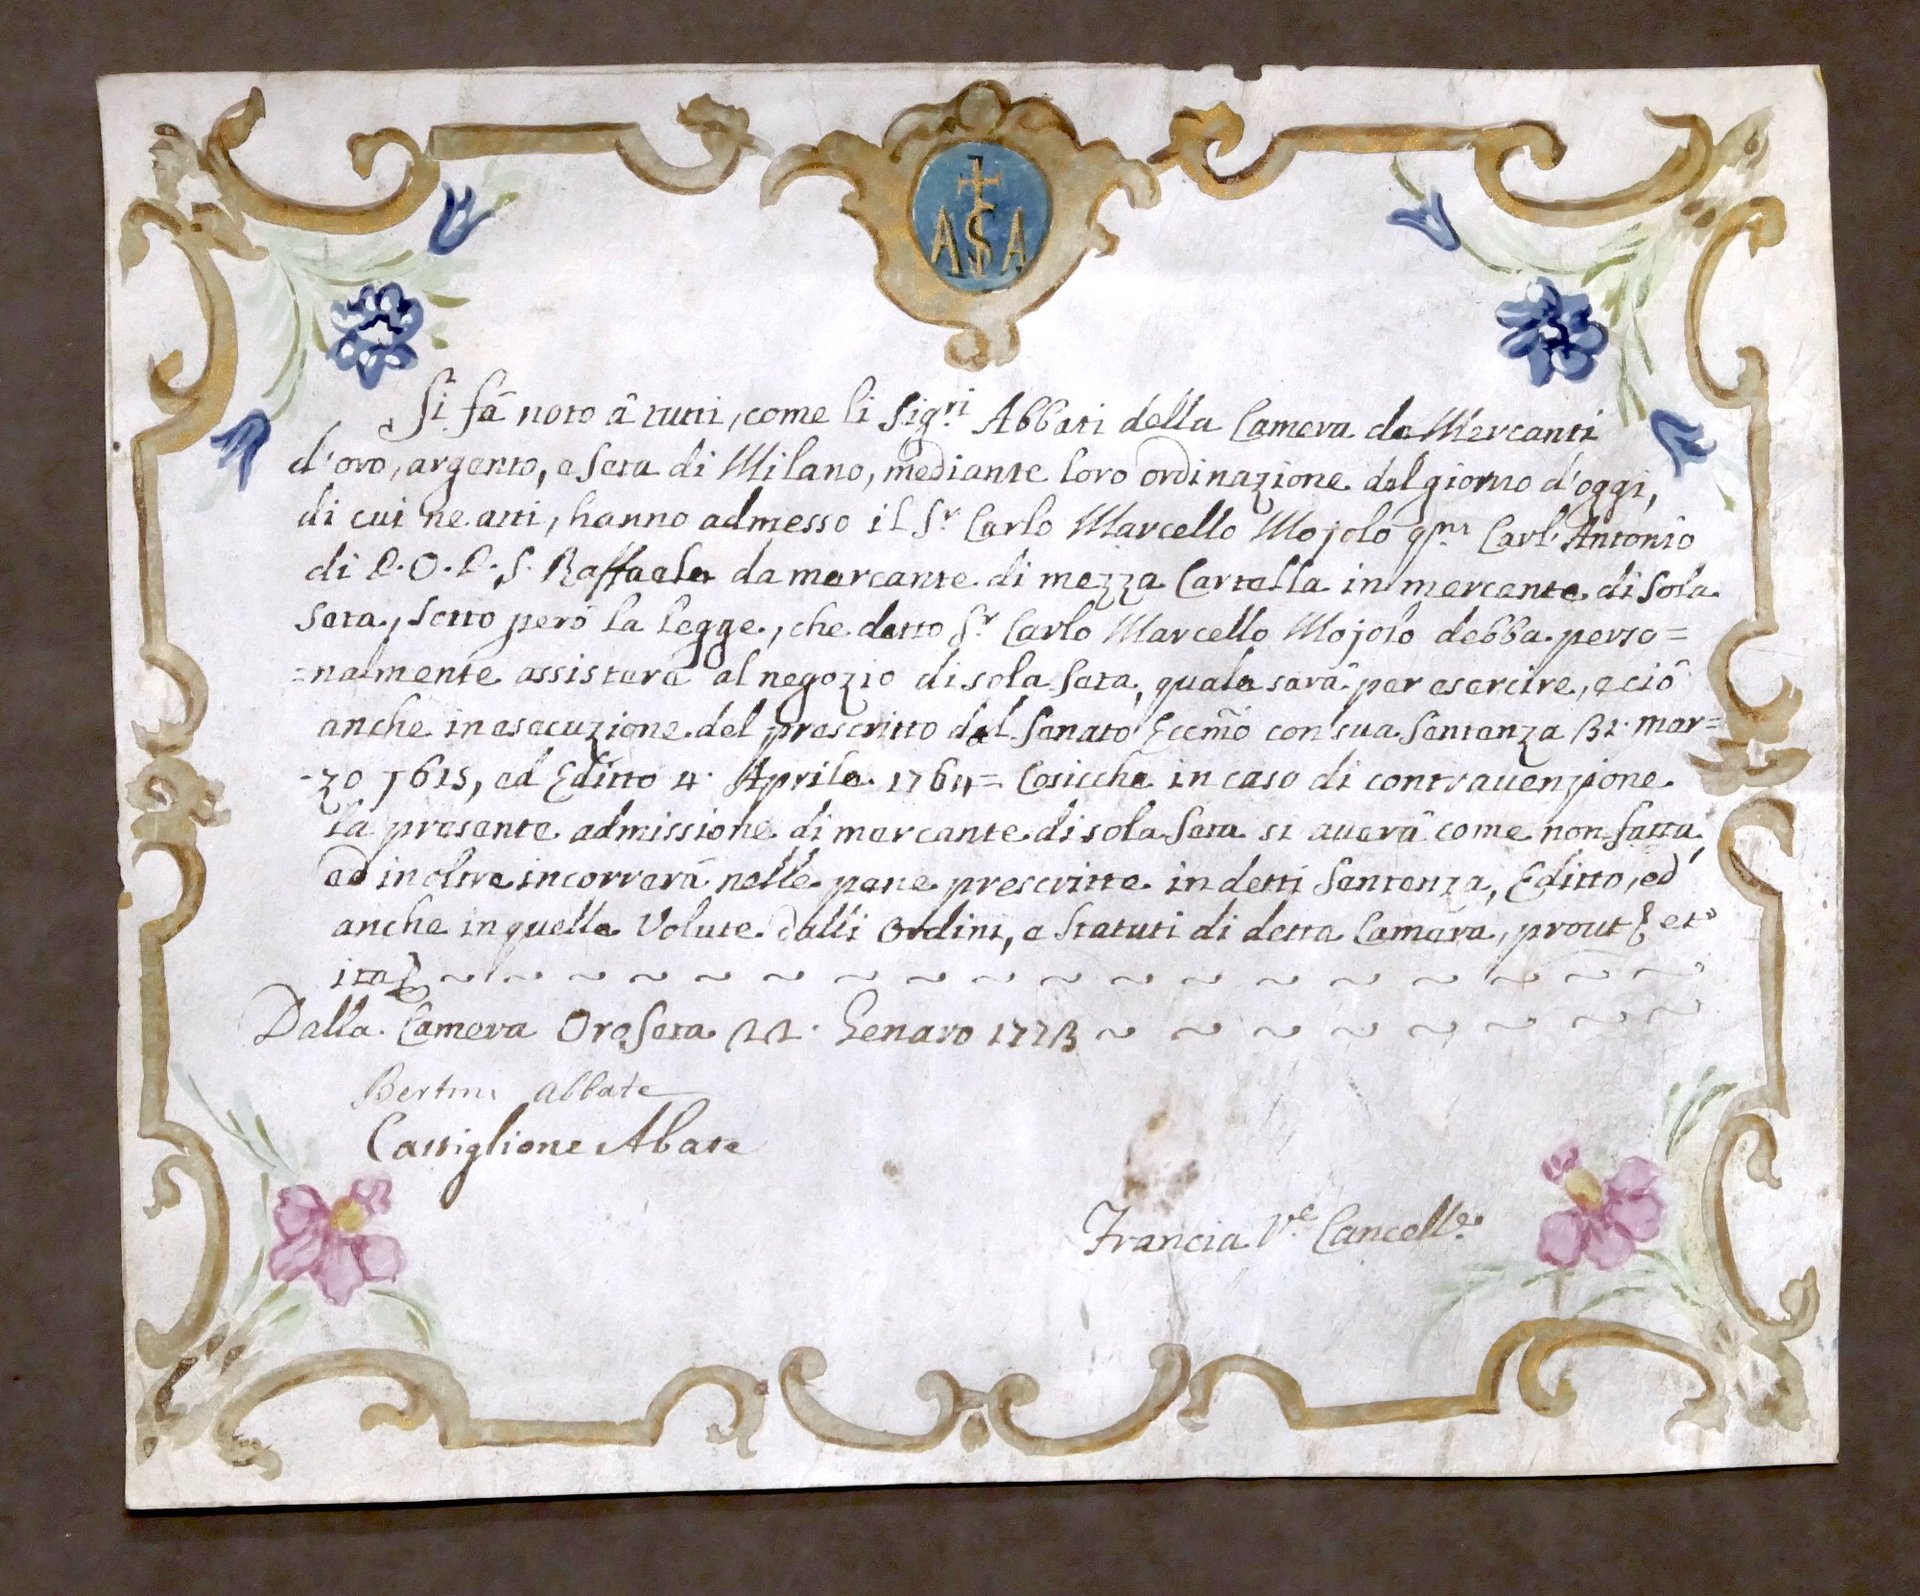 A S A
Si fà noto à tutti, come li Sig.ri Abbati della Camera de Mercanti
d'oro, argento, e seta di Milano, mediante loro ordinazione del giorno d'oggi,
di cui ne atti, hanno admesso il S.r Carlo Marcello Mojolo q.m Carl'Antonio
di P. O. P. S. Raffaele da mercante di mezza Cartella in mercante di sola
seta, sotto però la legge, che detto S.r Carlo Marcello Mojolo debba perso=
=nalmente assistere al negozio di sola seta, quale sarà per esercire, e ciò
anche in esecuzione del prescritto dal Senato Eccm̃o con sua Sentenza 31. mar=
-zo 1615, ed Editto 4. Aprile 1764= Cosicche in caso di contravenzione
la presente admissione di mercante di sola seta si averà come non fatta,
ed inoltre incorrerà nelle pene prescritte in detti Sentenza, Editto, ed
anche in quelle volute dalli Ordini, e Statuti di detta Camera, prout et
ita
Dalla Camera Oro Seta 22. Genaro 1773
Bertini Abbate
Castiglione Abate
Francia V.e Cancell.e